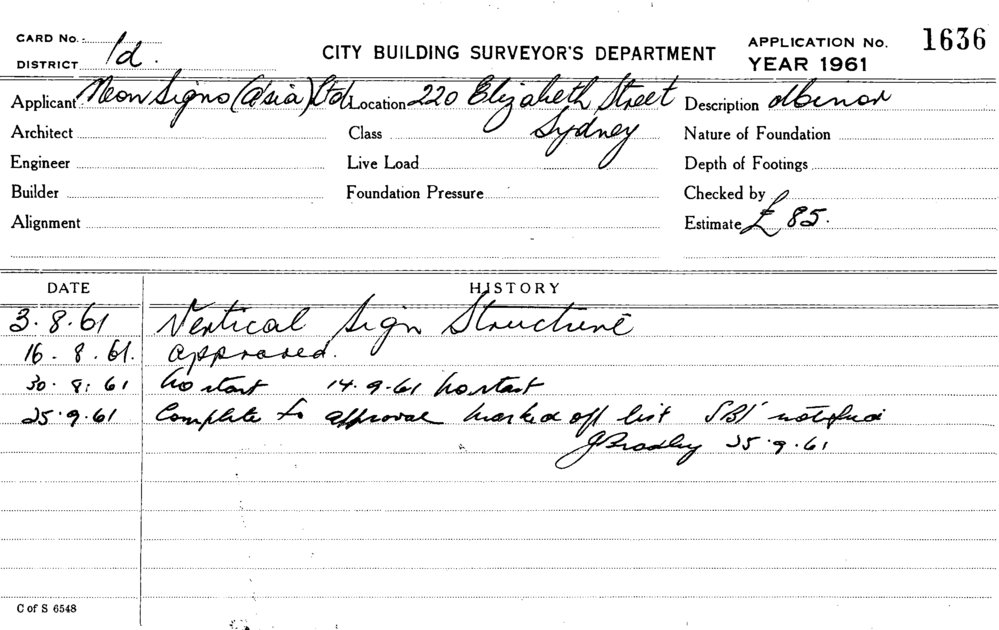 CARD No.
DISTRICT 1d.
CITY BUILDING SURVEYOR'S DEPARTMENT
APPLICATION No. 1636
YEAR 1961
Applicant Neon Signs (Asia) Ltd Location 220 Elizabeth Street Description
Architect Class Sydney Nature of Foundation
Engineer Live Load Depth of Footings
Builder Foundation Pressure Checked by
Alignment Estimate £ 85.
DATE HISTORY
3.8.61 Vertical Sign Structure
16.8.61. approved.
30.8.61 No start 14.9.61 No start
25.9.61 Complete to approval marked off list SBI notified
J Bradley 25.9.61
C of S 6548